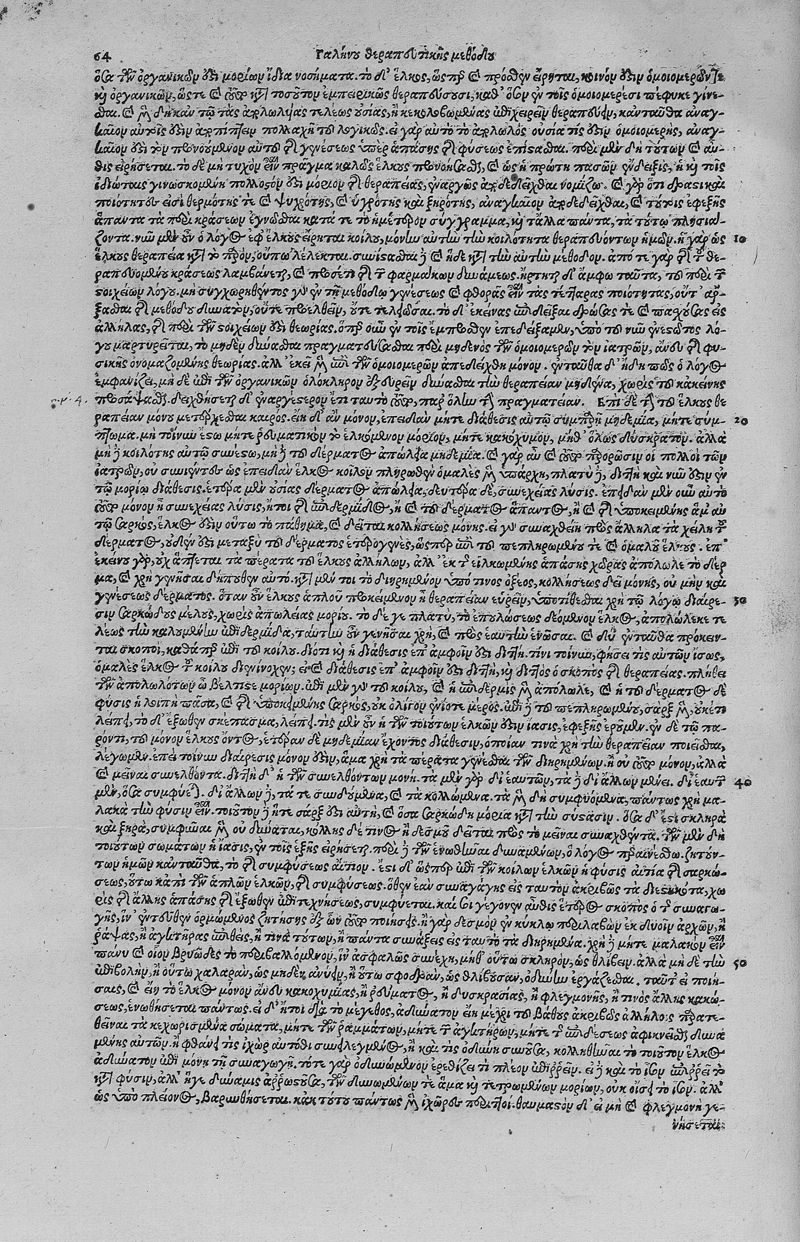 64 Γαλήνου θεραπευτικῆς μεθόδου
ὅσα τῶν ὀργανικῶν ἐστι μορίων ἴδια νοσήματα. τὸ δ' ἕλκος, ὥσπερ καὶ πρόσθεν εἴρηται, κοινὸν ἐστιν ὁμοιομερῶν τε
καὶ ὀργανικῶν, ὥστε καὶ
θαι. καὶ μὲν δὴ κἀν τῷ τὰς ἀπολωλυίας τελέως οὐσίας, ἢ κεκολοβωμένας ἐπιχειρεῖν θεραπεύειν, κἀνταῦθα ἀναγ-
καῖον αὐτοῖς ἐστιν ἀπαιτεῖν πολλαχῇ τὸ λογικῶς. εἰ γὰρ αὐτὸ τὸ ἀπολωλὸς οὐσία τίς ἐστιν ὁμοιομερὴς, ἀναγ-
καῖον ἐστι τὸν προνοούμενον αὐτοῦ τῆς γενέσεως ὑπὲρ ἁπάσης τῆς φύσεως ἐπίστασθαι. περὶ μὲν δὴ τούτων καὶ αὖ-
θις εἰρήσεται. τὸ δὲ μὴ τυχὸν εἶναι πρᾶγμα καλῶς ἕλκους προνοήσασθαι, καὶ ὡς ἡ πρώτη πασῶν ἔνδειξις, ἡ καὶ τοῖς
ἰδιώταις γινωσκομένη πολλοστόν ἐστι μόριον τῆς θεραπείας, ἐναργῶς ἀποδεδεῖχθαι νομίζω. καὶ γὰρ ὅτι δραστικαὶ
ποιότητές εἰσι θερμότης τε καὶ ψυχρότης, καὶ ὑγρότης καὶ ξηρότης, ἀναγκαῖον ἀποδεδεῖχθαι, καὶ τούτοις ἐφεξῆς
ἅπαντα τὰ περὶ κράσεων ἐγνῶσθαι κατά τε τὸ ἡμέτερον σύγγραμμα, καὶ τἄλλα πάντα, τὰ τούτῳ πλησιά-
ζοντα. νῦν μὲν οὖν ὁ λόγος ἐφ' ἕλκους εἴρηται κοίλου, μόνην αὐτῶν τὴν κοιλότητα θεραπευόντων ἡμῶν. ἡ γὰρ ὡς 10
ἕλκους θεραπεία κατὰ τὸ
ραπευομένου κράσεως λαμβάνεται, καὶ πρόσεστι τῆς τῶν φαρμάκων δυνάμεως. ἤρτηται δ' ἄμφω ταῦτα, τοῦ περὶ τῶν
στοιχείων λόγου. μὴ συγχωρηθέντος γοῦν ἐν τῇ μεθόδῳ γενέσεως καὶ φθορᾶς εἶναι τὰς τέτταρας ποιότητας, οὔτ' ἄρ-
ξασθαι τῆς μεθόδου δυνατὸν, οὔτε προελθεῖν, οὔτε τελεῶσαι. τὸ δ' ἐκείνας ἐπιδεῖξαι δρώσας τε καὶ πασχούσας εἰς
ἀλλήλας, τῆς περὶ τῶν στοιχείων ἐστι θεωρίας. ὅπερ οὖν ἐν τοῖς ἔμπροσθεν ἐπεδείξαμεν, ὑπὸ τοῦ νῦν ἐνεστῶτος λό-
γου μαρτυρεῖται, τὸ μηδὲν δύνασθαι πραγματεύσασθαι περὶ μηδενὸς τῶν ὁμοιομερῶν τὸν ἰατρὸν, ἄνευ τῆς φυ-
σικῆς ὀνομαζομένης θεωρίας. ἀλλ' ἐκεῖ μὲν ἐπὶ τῶν ὁμοιομερῶν ἀπεδείχθη μόνον. ἐνταῦθα δ' ἤδη πως ὁ λόγος
ἐμφανίζει, μηδὲ ἐπὶ τῶν ὀργανικῶν ὁλόκληρον ἐξευρεῖν δύνασθαι τὴν θεραπείαν μηδένα, χωρὶς τοῦ κἀκείνης
προσάψασθαι. δειχθήσεται δ' ἐναργέστερον ἔτι ταυτὸ τοῦτο, παρ' ὅλην τὴν πραγματείαν. Ἐπὶ δὲ τὴν τοῦ ἕλκους θε
ραπείαν μόνου μετέρχεσθαι καιρός. εἴη δ' ἂν μόνον, ἐπειδὰν μήτε διάθεσις αὐτῷ συμπαρῇ μηδεμία, μήτε σύμ- 20
πτωμα. μὴ τοίνυν ἔστω μήτε ῥευματικὸν τὸ ἑλκόμενον μόριον, μήτε κακόχυμον, μήθ' ὅλως δύσκρατον. ἀλλὰ
μὴ δὲ κοιλότης αὐτῷ συνέστω, μὴ δὲ τοῦ δέρματος ἀπώλεια μηδεμία. καὶ γὰρ αὖ καὶ τοῦτο παρορῶσιν οἱ πολλοὶ τῶν
ἰατρῶν, οὐ συνιέντες ὡς ἐπειδὰν ἕλκος κοῖλον πληρωθὲν ὁμαλὲς μὲν ὑπάρχῃ, πλατὺ δὲ, διττὴ καὶ νῦν ἐστιν ἐν
τῷ μορίῳ διάθεσις. ἑτέρα μὲν οὐσίας δέρματος ἀπώλεια, δευτέρα δὲ, συνεχείας λύσις. ἐπειδὰν μὲν οὖν αὐτὸ
τοῦτο μόνον ᾖ συνεχείας λύσις, ἤτοι τῆς ἐπιδερμίδος, ἢ καὶ τοῦ δέρματος ἅπαντος, ἢ καὶ τῆς ὑποκειμένης ἅμ' αὐ-
τῷ σαρκὸς, ἕλκος ἐστιν οὕτω τὸ πάθημα, καὶ δεῖται κολλήσεως μόνης. εἰ γὰρ συναχθείη πρὸς ἄλληλα τὰ χείλη τοῦ
δέρματος, οὐδέν ἐστι μεταξὺ τοῦ δέρματος ἑτερογενὲς, ὥσπερ ἐπὶ τοῦ πεπληρωμένου τε καὶ ὁμαλοῦ ἕλκους. ἐπ'
ἐκείνου γὰρ, οὐχ ἅπτεται τὰ πέρατα τοῦ ἕλκους ἀλλήλων, ἀλλ' ἐκ τῆς εἱλκωμένης ἁπάσης χώρας ἀπόλωλε τὸ δέρ
μα, καὶ χρὴ γενῆσαι δήπουθεν αὐτό. κατὰ μέν τοι τὸ διῃρημένον ὑπό τινος ὀξέος, κολλήσεως δεῖ μόνης, οὐ μὴν καὶ
γενέσεως δέρματος. ὅταν οὖν ἕλκους ἁπλοῦ προκειμένου ᾖ θεραπείαν εὑρεῖν, ὑποτίθεσθαι χρὴ τῷ λόγῳ διαίρε- 30
σιν σαρκώδους μέλους, χωρὶς ἀπωλείας μορίου. τὸ δέ γε πλατὺ, τὸ ἐπουλώσεως δεόμενον ἕλκος, ἀπολώλεκέ τε-
λέως τὴν καλουμένην ἐπιδερμίδα, ταύτην οὖν γεννῆσαι χρὴ, καὶ πρὸς ἑαυτὴν ἑνῶσαι. καὶ δύο ἐνταῦθα πρόκειν-
ται σκοποὶ, καθάπερ ἐπὶ τοῦ κοίλου. διότι καὶ ἡ διάθεσις ἐπ' ἀμφοῖν ἐστι διττή. τίνι τοίνυν, φήσει τις αὐτῶν ἴσως,
ὁμαλὲς ἕλκος τοῦ κοίλου διενήνοχεν; εἰ καὶ διάθεσις ἐπ' ἀμφοῖν ἐστι διττὴ, καὶ διττὸς ὁ σκοπὸς τῆς θεραπείας. πλήθει
τῶν ἀπολωλότων ὦ βέλτιστε μορίων. ἐπὶ μὲν γὰρ τοῦ κοίλου, καὶ ἡ ἐπιδερμὶς ἀπόλωλε, καὶ ἡ τοῦ δέρματος δὲ
φύσις ἡ λοιπὴ πᾶσα, καὶ τῆς ὑποκειμένης σαρκὸς, οὐκ ὀλίγον ἐνίοτε μέρος. ἐπὶ δὲ τοῦ πεπληρωμένου, σὰρξ μὲν, οὐκέτι
λείπει, τὸ δ' ἔξωθεν σκέπασμα, λείπει. τίς μὲν οὖν ἡ τῶν τοιούτων ἑλκῶν ἐστιν ἴασις, ἐφεξῆς ἐροῦμεν. ἐν δὲ τῷ πα-
ρόντι, τοῦ μόνον ἕλκους ὄντος, ἑτέραν δὲ μηδεμίαν ἔχοντος διάθεσιν, ὁποίαν τινὰ χρὴ τὴν θεραπείαν ποιεῖσθαι,
λέγωμεν. ἐπεὶ τοίνυν διαίρεσις μόνον ἐστιν, ἅμα χρὴ τὰ πέρατα γενέσθαι τῶν διῃρημένων. ἢ οὐ τοῦτο μόνον, ἀλλὰ
καὶ μεῖναι συνελθόντα. διττὴ δ' ἡ τῶν συνελθόντων μονή. τὰ μὲν γὰρ δι' ἑαυτῶν, τὰ δὲ δι' ἄλλων μένει. δι' ἑαυτῶν 40
μὲν, ὅσα συμφύεται. δι' ἄλλων δὲ, τά τε συνδούμενα, καὶ τὰ κολλώμενα. τὰ μὲν δὴ συμφυόμενα, πάντως χρὴ μα-
λακὰ τὴν φύσιν εἶναι. τοιοῦτον δὲ ἥ τε σάρξ ἐστι αὐτὴ, καὶ ὅσα σαρκώδη μόρια κατὰ τὴν σύστασιν. ὅσα δ' ἐστὶ σκληρὰ
καὶ ξηρὰ, συμφῦναι μὲν οὐ δύναται, κόλλης δέ τινος ἢ δεσμοῦ δεῖται πρὸς τὸ μεῖναι συναχθέντα. τῶν μὲν δὴ
τοιούτων σωμάτων ἡ ἴασις, ἐν τοῖς ἑξῆς εἰρήσεται. περὶ δὲ τῶν ἑνωθῆναι δυναμένων, ὁ λόγος περαινέσθω. ζητούν-
των ἡμῶν κἀνταῦθα, τὸ τῆς συμφύσεως αἴτιον. ἔστι δ' ὥσπερ ἐπὶ τῶν κοίλων ἑλκῶν ἡ φύσις αἰτία τῆς σαρκώ-
σεως, οὕτω κἀπὶ τῶν ἁπλῶν ἑλκῶν, τῆς συμφύσεως. ὅθεν ἐὰν συναγάγῃς εἰς ταυτὸν ἀκριβῶς τὰ διεστηκότα, χω
ρὶς τῆς ἄλλης ἁπάσης τῆς ἔξωθεν ἐπιτεχνήσεως, συμφύεται. καί σοι γέγονεν αὖθις ἕτερος σκοπὸς ὁ τῆς συναγω-
γῆς, ἵν' ἐντεῦθεν ὁρμώμενος ζητήσῃς ἐξ ὧν τοῦτο ποιήσεις. ἢ γὰρ δεσμὸν ἐν κύκλῳ περιλαβὼν ἐκ δυοῖν ἀρχῶν, ἢ
ῥάψας, ἢ ἀγκτῆρας ἐπιθεὶς, ἤ τινα τούτων, ἢ πάντα συνάξεις εἰς ταυτὸ τὰ διῃρημένα. χρὴ δὲ μήτε μαλακὸν εἶναι
πάνυ καὶ οἷον βρυῶδες τὸ περιβαλλόμενον, ἵν' ἀσφαλῶς συνέχῃ, μήθ' οὕτω σκληρὸν, ὡς θλίβειν. ἀλλὰ μηδὲ τὴν 50
ἐπιβολὴν, ἢ οὕτω χαλαρὰν, ὡς μηδὲν ἀνύειν, ἢ οὕτω σφοδρὰν, ὡς θλίβουσαν, ὀδύνην ἐργάζεσθαι. ταῦτ' εἰ ποιή-
σαις, καὶ εἴη τὸ ἕλκος μόνον ἄνευ κακοχυμίας, ἢ ῥεύματος, ἢ δυσκρασίας, ἢ φλεγμονῆς, ἤ τινος ἄλλης κακώ-
σεως, ἑνωθήσεται πάντως. εἰ δ' ἤτοι διὰ τὸ μέγεθος, ἀδύνατον εἴη μέχρι τοῦ βάθους ἀκριβῶς ἀλλήλοις παρατε-
θεῖναι τὰ κεχωρισμένα σώματα, μήτε τῶν ῥαμμάτων, μήτε τῶν ἀγκτήρων, μήτε τῆς ἐπιδέσεως ἀφικνεῖσθαι δυνα
μένης αὐτῶν. ἢ φθάνῃ τις ἰχὼρ αὐτόθι συνειλεγμένος, ἢ καί τις ὀδύνη συνοῦσα, κολληθῆναι τὸ τοιοῦτον ἕλκος
ἀδύνατον ἐπὶ μόνῃ τῇ συναγωγῇ. τότε γὰρ ὀδυνώμενον ἐρεθίζει τὶ πλέον ἐπιῤῥεῖν. εἰ δὲ καὶ τὸ ἴσον ἐπιῤῥεῖ τὸ
κατὰ φύσιν, ἀλλ' ἥ γε δύναμις ἀῤῥωστοῦσα, τῶν ὀδυνωμένων τε ἅμα καὶ τετρωμένων μορίων, οὐκ οἴσει τὸ ἴσον. ἀλλ'
ὡς ὑπὸ πλείονος, βαρυνθήσεται. κἀκ τούτου πάντως μὲν ἰχῶρος περίττωσις. θαυμαστὸν δ' εἰ μὴ καὶ φλεγμονὴ γε-
νήσεται.